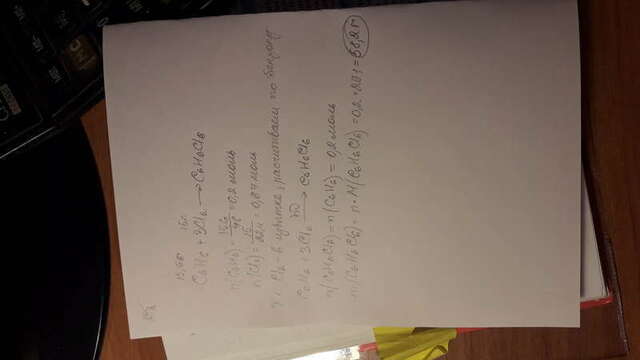 15,6г 15л
C6H6 + 3Cl2 → C6H6Cl6
n(C6H6) = 15,6/78 = 0,2 моль
n(Cl2) = 15/22,4 = 0,67 моль
Cl2 - в избытке, расчитываем по бензолу
C6H6 + 3Cl2 → C6H6Cl6
n(C6H6Cl6) = n(C6H6) = 0,2 моль
m(C6H6Cl6) = n · M(C6H6Cl6) = 0,2 · 291 = 58,2 г